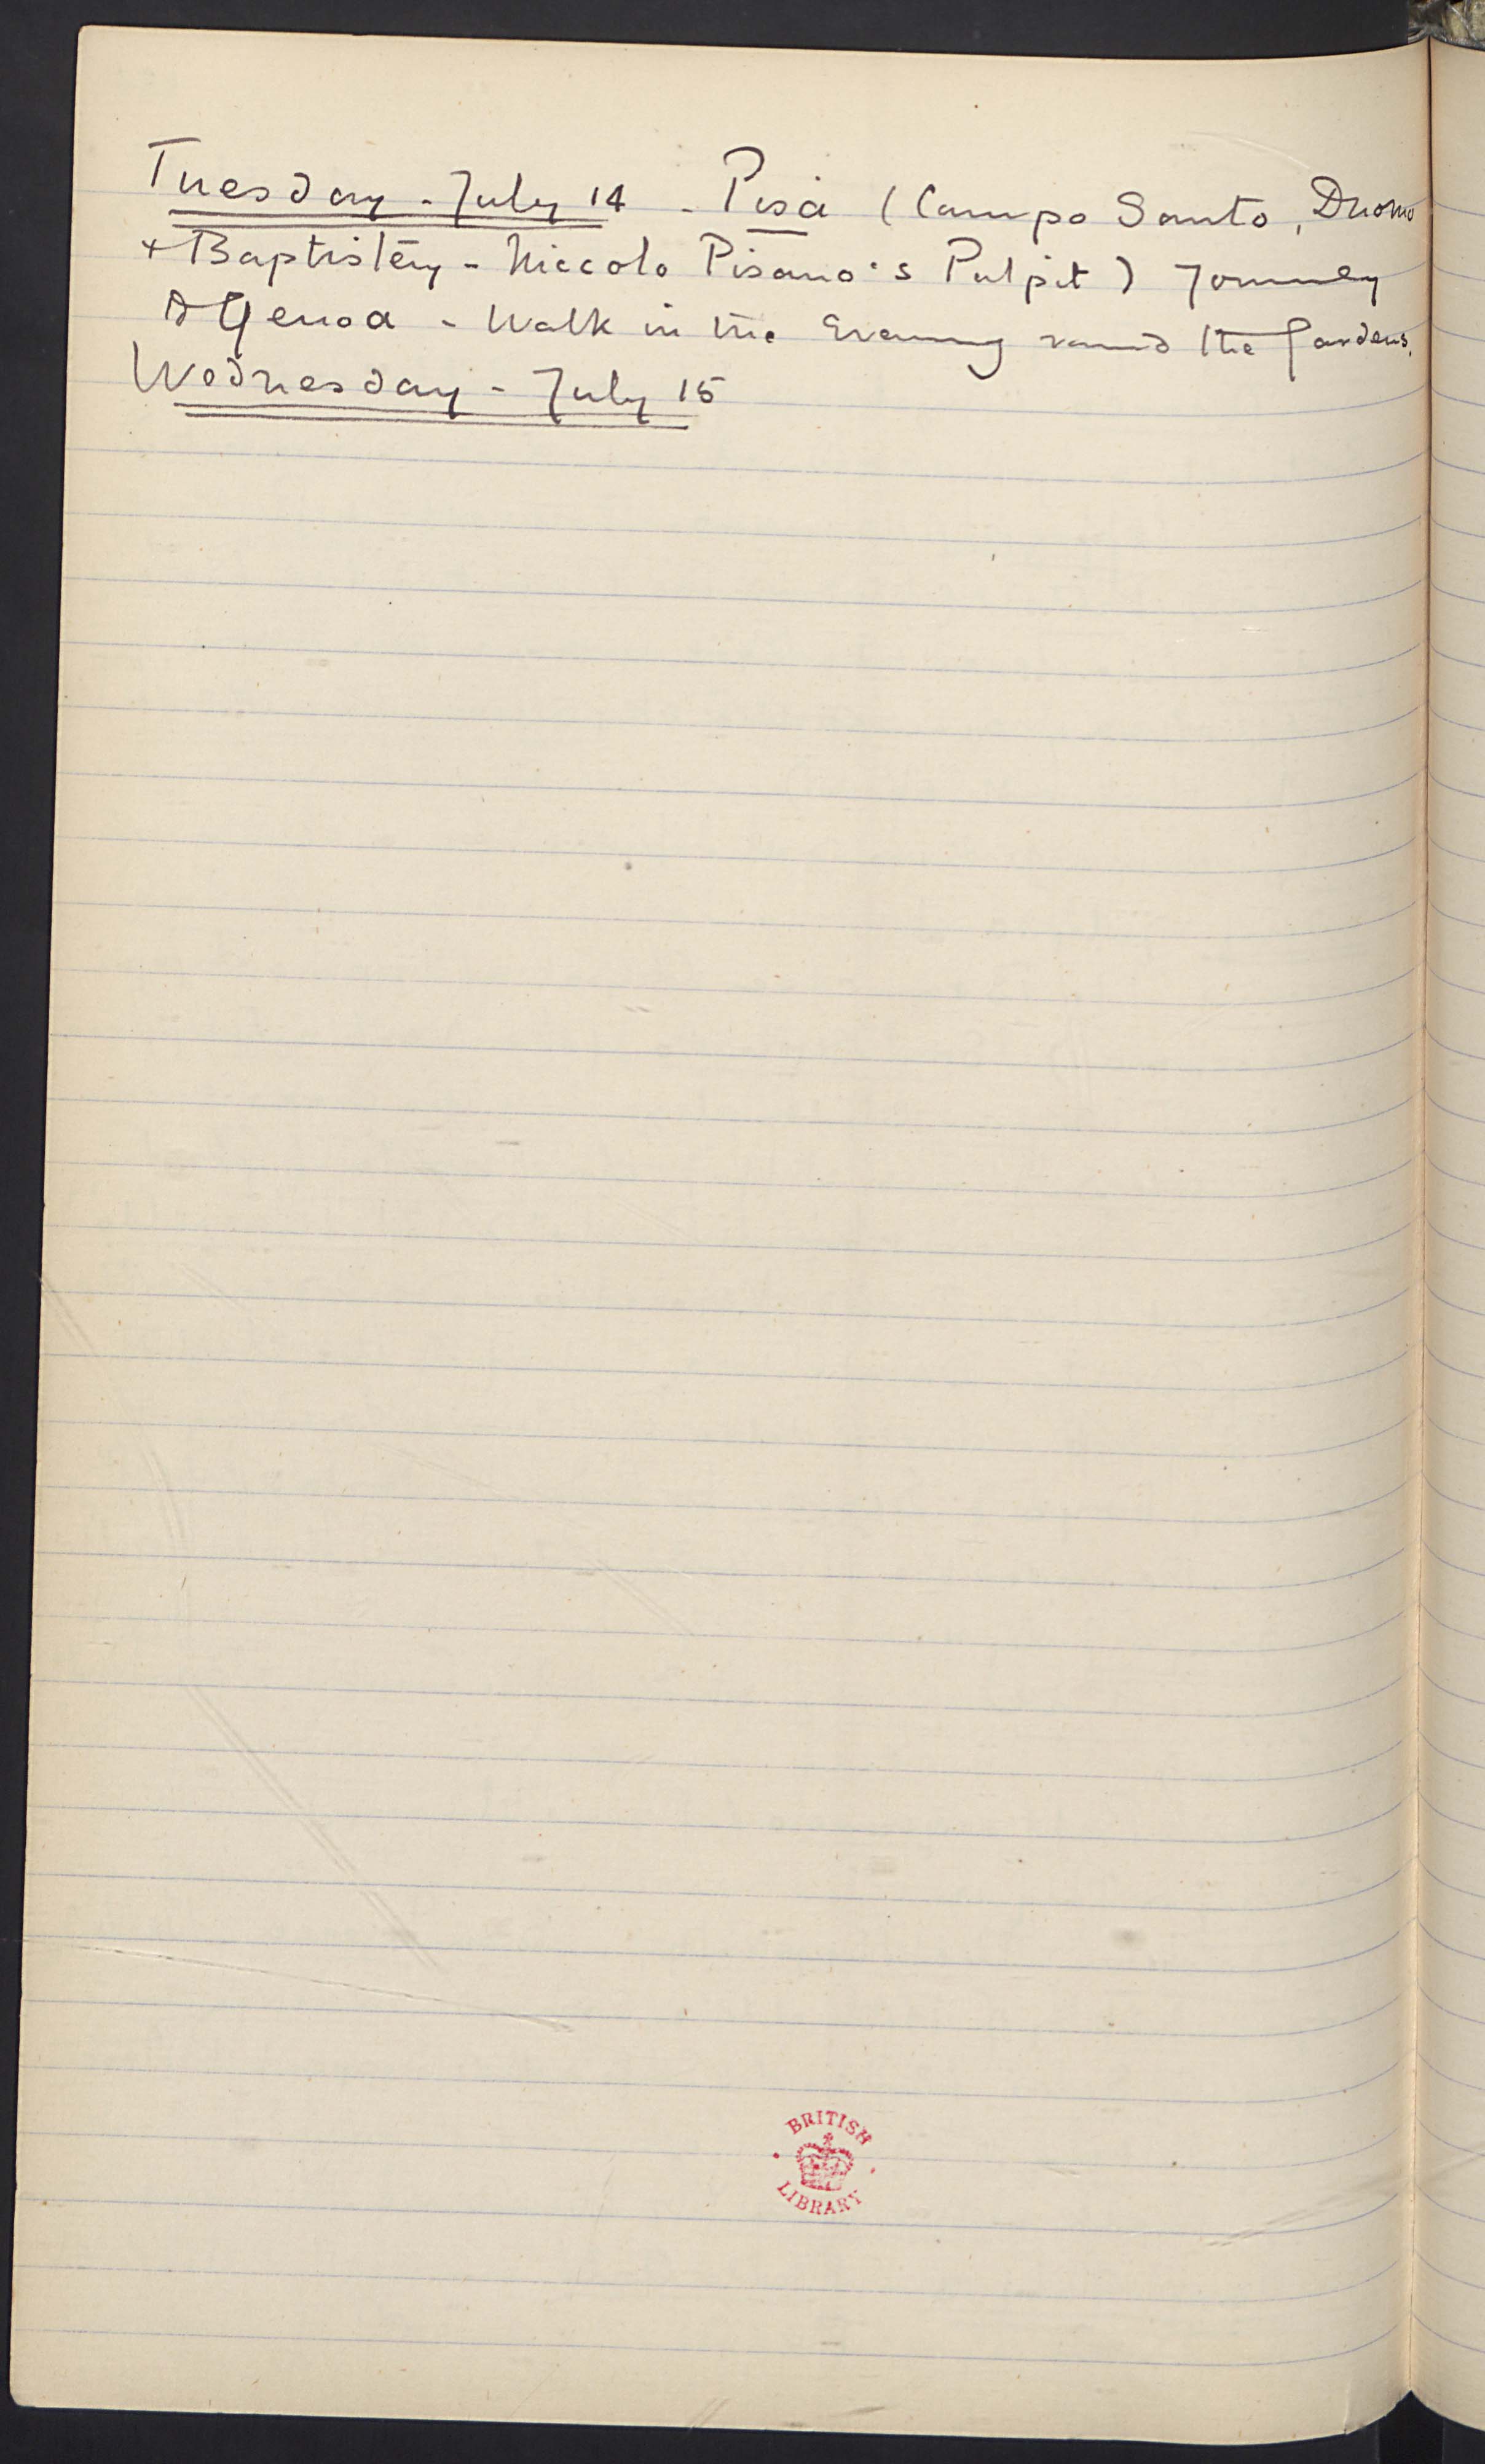 Tuesday - July 14 - Pisa (Campo Santo, Duomo
+ Baptistery - Niccolo Pisano's Pulpit) Journey
to Genoa - Walk in the Evening round the Gardens.
Wednesday - July 15
BRITISH
LIBRARY